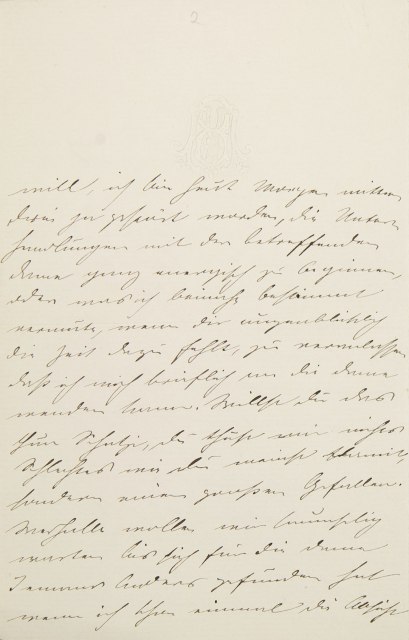 2
will, ich bin heut Morgen mitten
zu gespürt worden, die Unter-
handlungen mit der betreffenden
Dame ganz energisch zu beginnen,
oder was ich beinah bestimmt
vermute, wenn dir augenblicklich
die Zeit dazu fehlt, zu veranlassen
daß ich mich brieflich an die Dame
wenden kann. Willst du das
thun Schatz, du thust mir nichts
Schlechtes wie du meinst damit,
sondern einen großen Gefallen.
Weshalb wollen wir
warten bis sich für die Dame
Jemand Anders gefunden hat
wenn ich schon einmal die Absicht